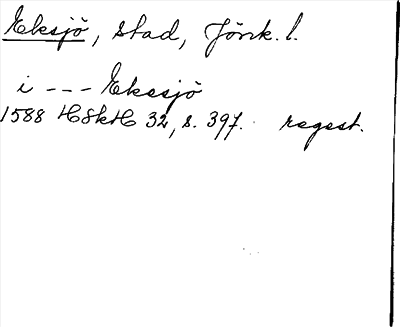 Eksjö, stad, Jönk. l.
i --- Ekesjö
1588 HSkH 32, s. 397. regest.